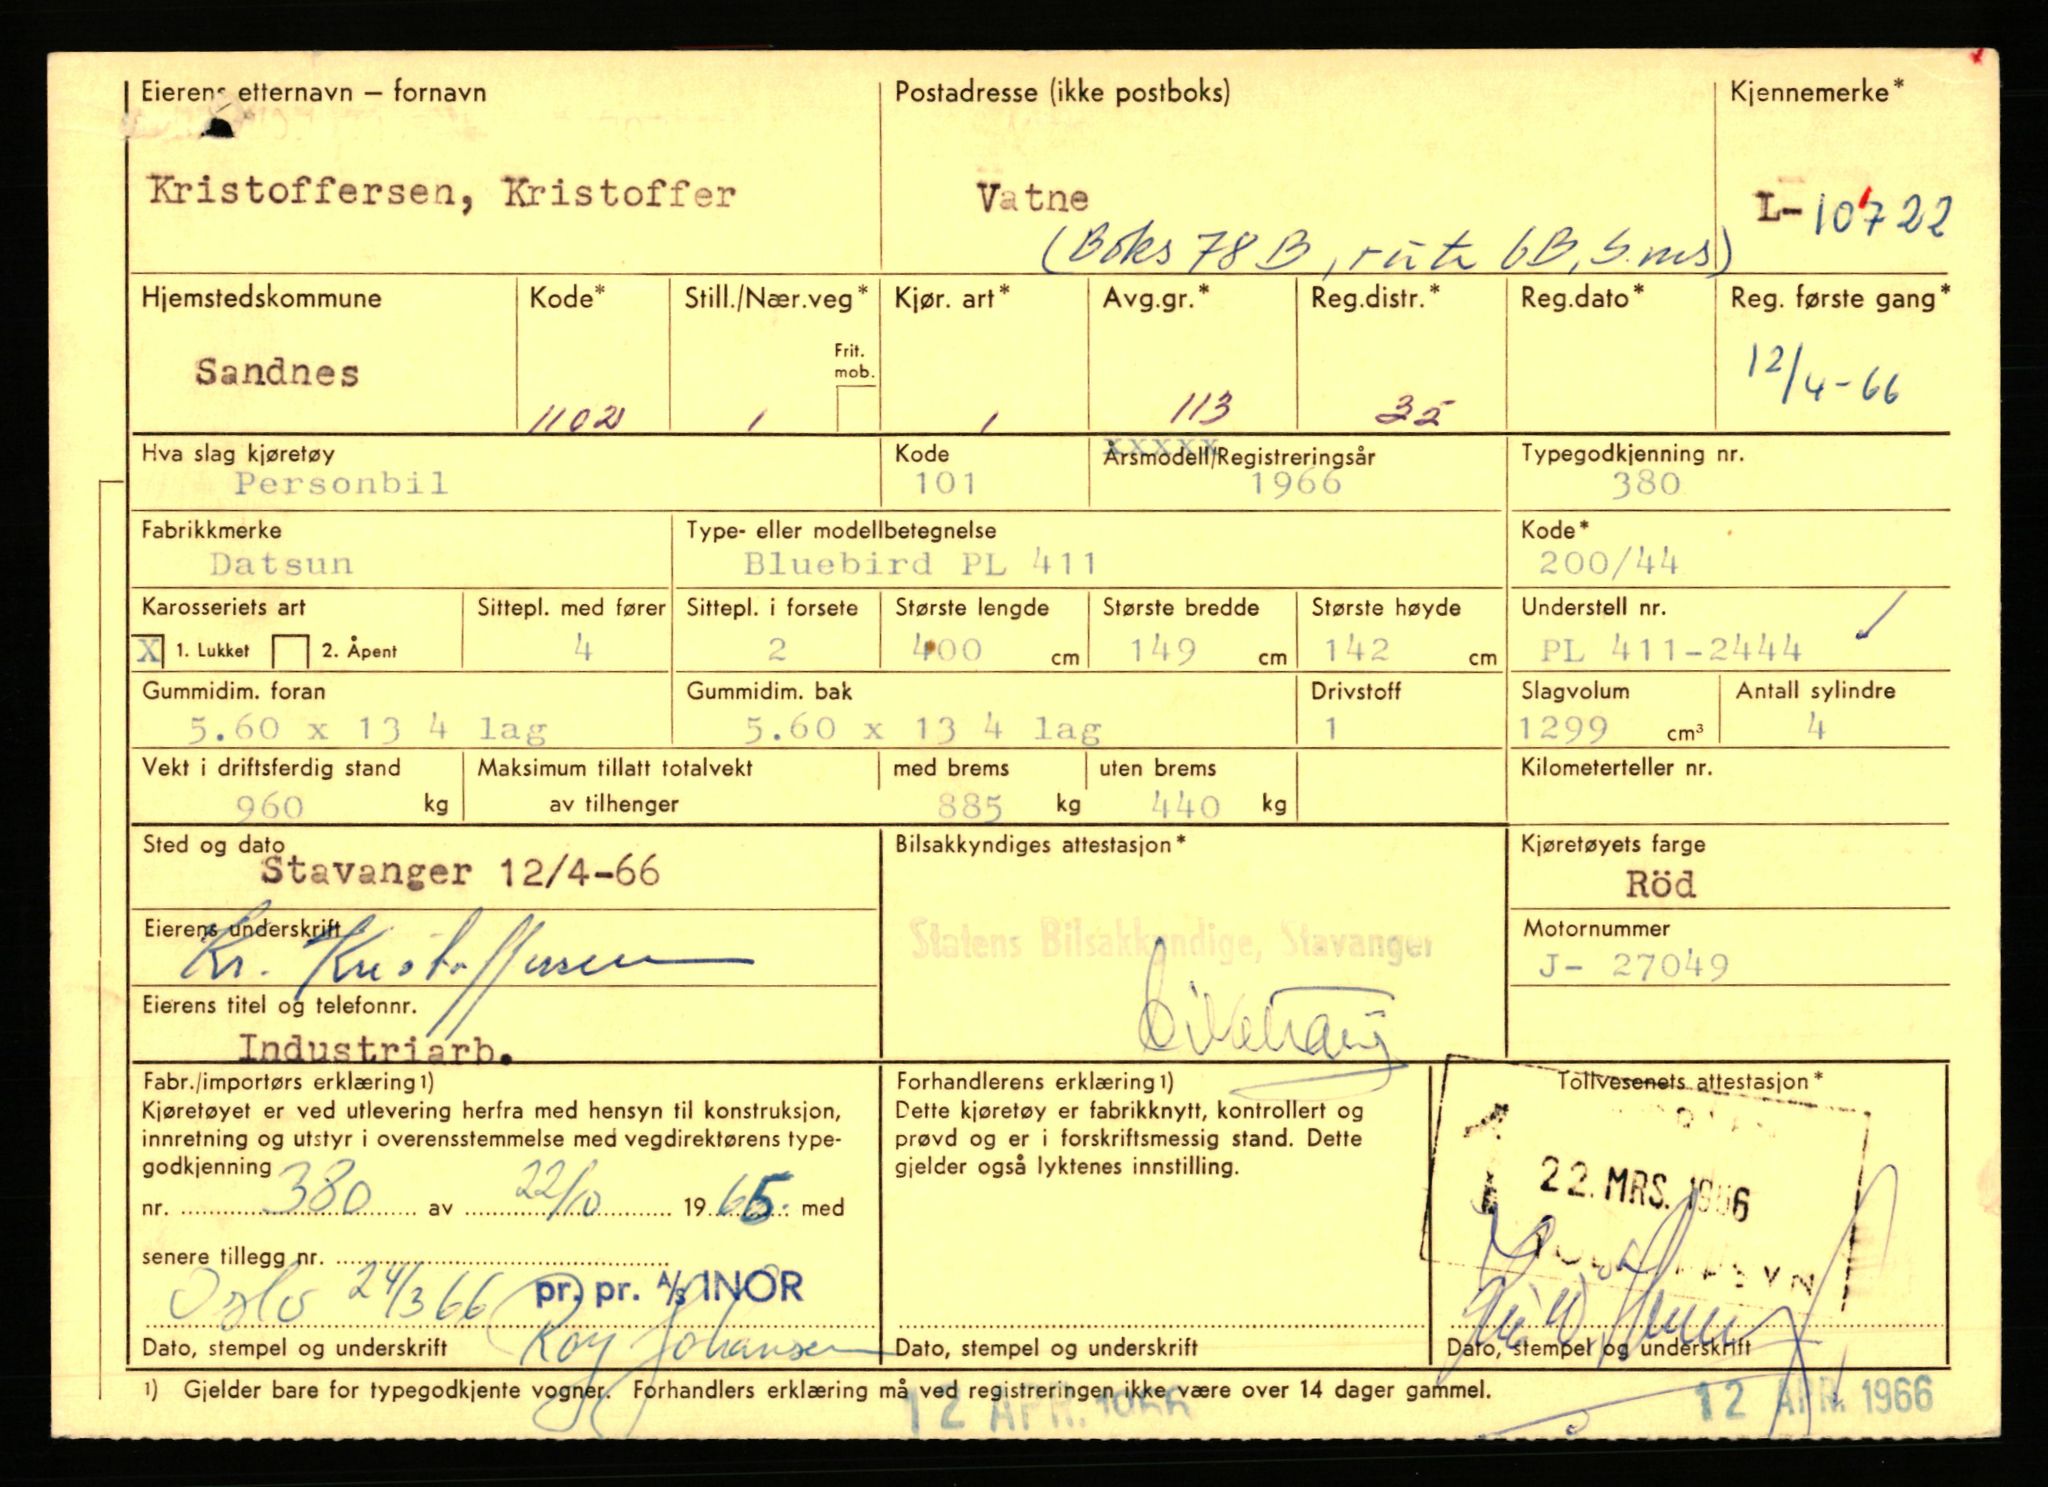 Eierens etternavn – fornavn
Postadresse (ikke postboks)
Kjennemerke*
Kristoffersen, Kristoffer
Vatne
L-10722
(Boks 78 B, rute 6B, S.nes)
Hjemstedskommune
Kode*
Still./Nær.veg*
Kjør. art*
Avg.gr.*
Reg.distr.*
Reg.dato*
Reg. første gang*
Frit. mob.
Sandnes
1102
1
1
113
35
12/4-66
Hva slag kjøretøy
Kode
Årsmodell/Registreringsår
Typegodkjenning nr.
Personbil
101
1966
380
Fabrikkmerke
Type- eller modellbetegnelse
Kode*
Datsun
Bluebird PL 411
200/44
Karosseriets art
Sittepl. med fører
Sittepl. i forsete
Største lengde
Største bredde
Største høyde
Understell nr.
X 1. Lukket 2. Åpent
4
2
400 cm
149 cm
142 cm
PL 411-2444
Gummidim. foran
Gummidim. bak
Drivstoff
Slagvolum
Antall sylindre
5.60 x 13 4 lag
5.60 x 13 4 lag
1
1299 cm³
4
Vekt i driftsferdig stand
Maksimum tillatt totalvekt
med brems
uten brems
Kilometerteller nr.
960 kg
av tilhenger
885 kg
440 kg
Sted og dato
Bilsakkyndiges attestasjon*
Kjøretøyets farge
Stavanger 12/4-66
Röd
Eierens underskrift
Motornummer
Kr. Kristoffersen
Statens Bilsakkyndige, Stavanger
J- 27049
Eierens titel og telefonnr.
Industriarb.
Fabr./importørs erklæring1)
Forhandlerens erklæring1)
Tollvesenets attestasjon*
Kjøretøyet er ved utlevering herfra med hensyn til konstruksjon,
innretning og utstyr i overensstemmelse med vegdirektørens type-
godkjenning
Dette kjøretøy er fabrikknytt, kontrollert og
prøvd og er i forskriftsmessig stand. Dette
gjelder også lyktenes innstilling.
22. MRS. 1966
nr. 380 av 22/10 1965. med
senere tillegg nr.
Oslo 24/3 66
pr. pr. A/S INOR
Roy Johansen
Dato, stempel og underskrift
Dato, stempel og underskrift
Dato, stempel og underskrift
1) Gjelder bare for typegodkjente vogner. Forhandlers erklæring må ved registreringen ikke være over 14 dager gammel.
12 APR. 1966
12 APR. 1966